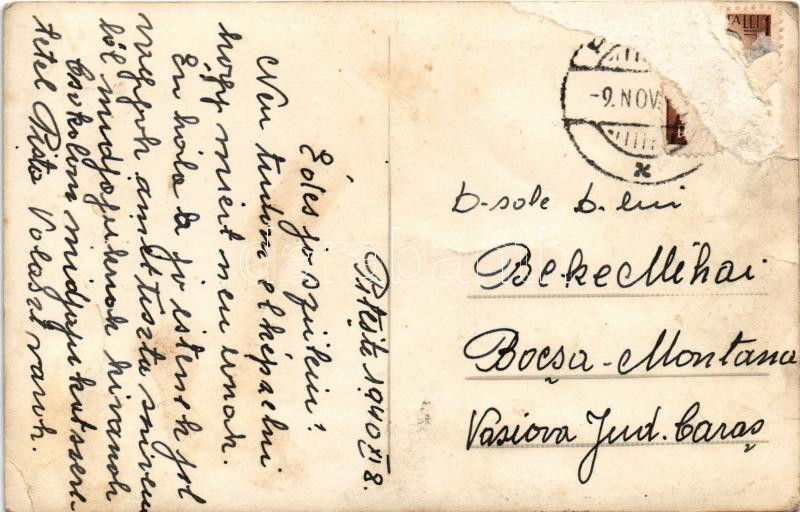 Pitești 1940 XI 8.
Édes jo szüleim!
Nem tudom elképzelni
hogy miert nem irnak.
En hála a jó istenek jol
megyek amit tiszta szivem
ből midjajuknak kivanok
Csokolom midjajukat szere-
tetel Pista Volaszt varok.
-9. NOV.
A LEI 1
D-sale D-lui
Beke Mihai
Bocșa-Montana
Vasiova Jud. Caraș
darabanth